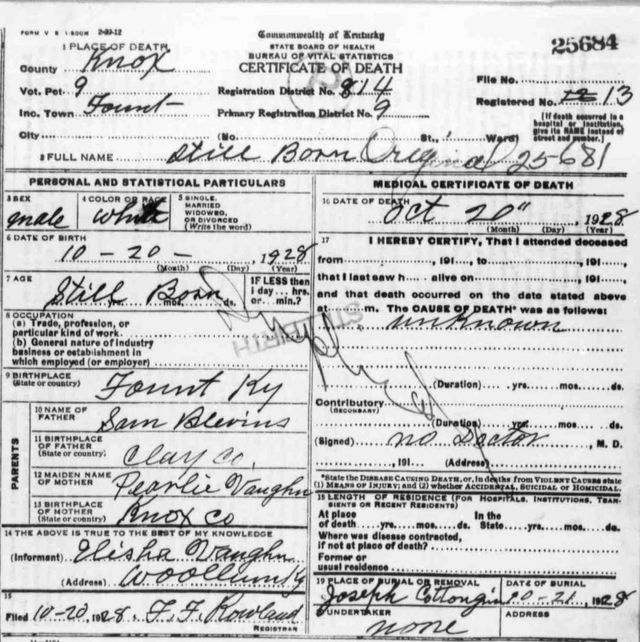 FORM V. S. 1-500M 2-20-12
Commonwealth of Kentucky
STATE BOARD OF HEALTH
BUREAU OF VITAL STATISTICS
CERTIFICATE OF DEATH
25684
1 PLACE OF DEATH
County Knox
Vot. Pct 9
Inc. Town Fount
City
Registration District No. 814
Primary Registration District No. 9
(No. St., Ward)
File No.
Registered No. 12 13
[If death occurred in a hospital or institution, give its NAME instead of street and number.]
2 FULL NAME Still Born Original 25681
PERSONAL AND STATISTICAL PARTICULARS
3 SEX male
4 COLOR OR RACE White
5 SINGLE, MARRIED WIDOWED, OR DIVORCED (Write the word)
6 DATE OF BIRTH
10 - 20 - , 1928
(Month) (Day) (Year)
7 AGE Still Born
mos. ds.
IF LESS than 1 day... hrs. or... min.?
8 OCCUPATION
(a) Trade, profession, or particular kind of work
(b) General nature of industry business or establishment in which employed (or employer)
9 BIRTHPLACE
(State or country) Fount Ky
PARENTS
10 NAME OF FATHER Sam Blevins
11 BIRTHPLACE OF FATHER (State or country) Clay Co.
12 MAIDEN NAME OF MOTHER Pearlie Vaughn
13 BIRTHPLACE OF MOTHER (State or country) Knox Co
14 THE ABOVE IS TRUE TO THE BEST OF MY KNOWLEDGE
(Informant) Elisha Vaughn
(Address)
15
Filed 10-20, 1928 F. F. Rowland
REGISTRAR
MEDICAL CERTIFICATE OF DEATH
16 DATE OF DEATH Oct 20", 1928
(Month) (Day) (Year)
17 I HEREBY CERTIFY, That I attended deceased
from , 191 , to , 191 ,
that I last saw h alive on , 191 ,
and that death occurred on the date stated above
at m. The CAUSE OF DEATH* was as follows:
unknown
STILLBIRTH
(Duration) yrs. mos. ds.
Contributory
(SECONDARY)
(Duration) yrs. mos. ds.
(Signed) no Doctor, M. D.
, 191 (Address)
*State the DISEASE CAUSING DEATH, or, in deaths from VIOLENT CAUSES state (1) MEANS OF INJURY; and (2) whether ACCIDENTAL, SUICIDAL OR HOMICIDAL.
18 LENGTH OF RESIDENCE (FOR HOSPITALS, INSTITUTIONS, TRANSIENTS OR RECENT RESIDENTS)
At place of death yrs. mos. ds. In the State yrs. mos. ds.
Where was disease contracted, if not at place of death?
Former or usual residence
19 PLACE OF BURIAL OR REMOVAL
Joseph Cottongin
DATE OF BURIAL
10-21, 1928
UNDERTAKER
none
ADDRESS